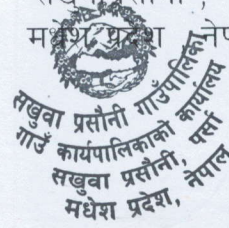 मधेश प्रदेश, नेप
सखुवा प्रसौनी गाउँपालिका
गाउँ कार्यपालिकाको कार्यालय
सखुवा प्रसौनी, पर्सा
मधेश प्रदेश, नेपाल